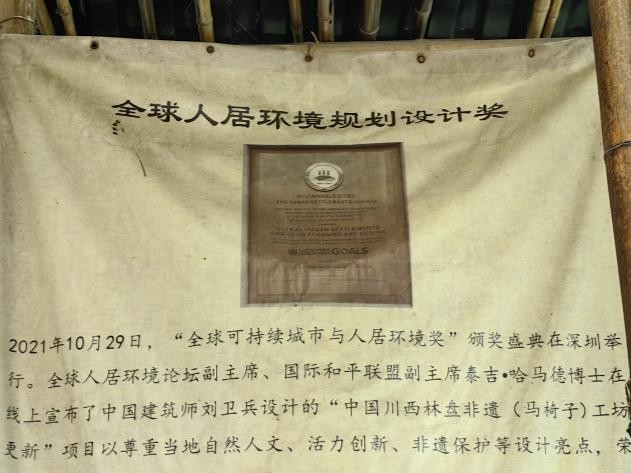 全球人居环境规划设计奖
SUSTAINABLE CITIES
AND HUMAN SETTLEMENTS AWARDS
GLOBAL HUMAN SETTLEMENTS
AWARD ON PLANNING AND DESIGN
GOALS
2021年10月29日，“全球可持续城市与人居环境奖”颁奖盛典在深圳举
行。全球人居环境论坛副主席、国际和平联盟副主席泰吉•哈马德博士在
线上宣布了中国建筑师刘卫兵设计的“中国川西林盘非遗（马椅子)工坊
更新”项目以尊重当地自然人文、活力创新、非遗保护等设计亮点，荣